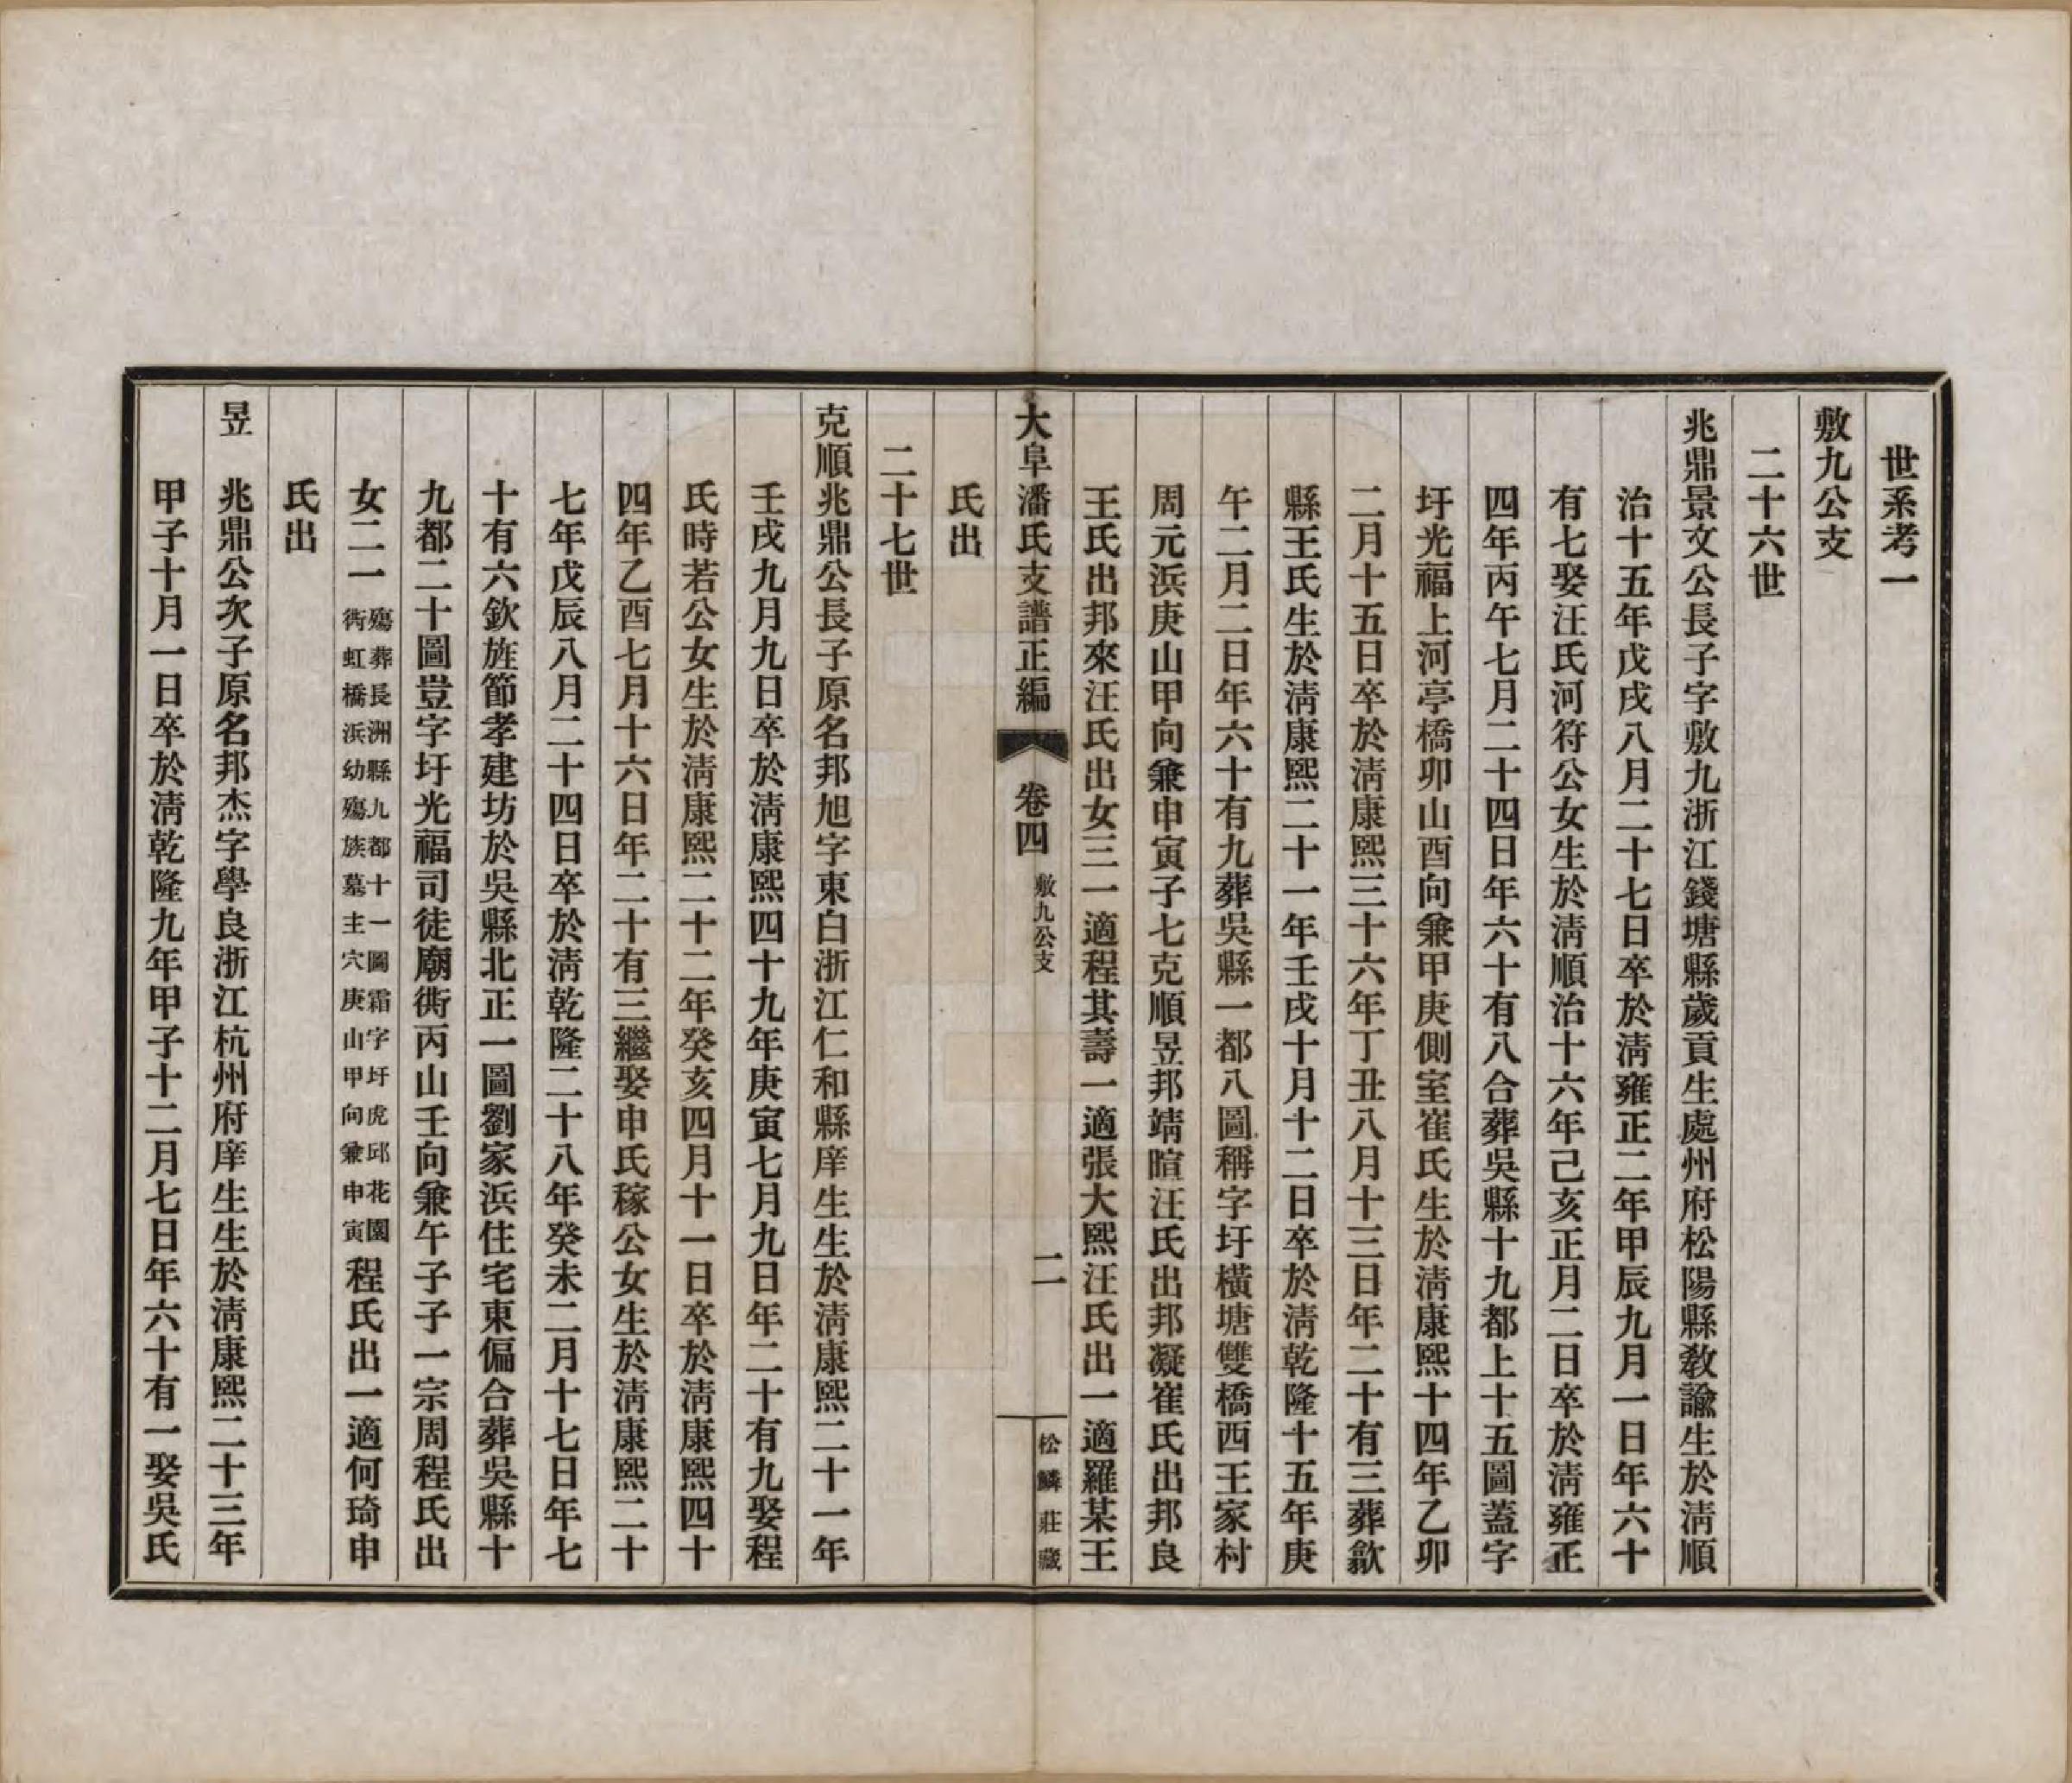 世系考一
敷九公支
二十六世
兆鼎景文公長子字敷九浙江錢塘縣歲貢生處州府松陽縣教諭生於清順
治十五年戊戌八月二十七日卒於清雍正二年甲辰九月一日年六十
有七娶汪氏河符公女生於清順治十六年己亥正月二日卒於清雍正
四年丙午七月二十四日年六十有八合葬吳縣十九都上十五圖蓋字
圩光福上河亭橋卯山酉向兼甲庚側室崔氏生於清康熙十四年乙卯
二月十五日卒於清康熙三十六年丁丑八月十三日年二十有三葬歙
縣王氏生於清康熙二十一年壬戌十月十二日卒於清乾隆十五年庚
午二月二日年六十有九葬吳縣一都八圖稱字圩橫塘雙橋西王家村
周元浜庚山甲向兼申寅子七克順昱邦靖暄汪氏出邦凝崔氏出邦良
王氏出邦來汪氏出女三一適程其壽一適張大熙汪氏出一適羅某王
大阜潘氏支譜正編 卷四 敷九公支 二 松鱗莊藏
氏出
二十七世
克順兆鼎公長子原名邦旭字東白浙江仁和縣庠生生於清康熙二十一年
壬戌九月九日卒於清康熙四十九年庚寅七月九日年二十有九娶程
氏時若公女生於清康熙二十二年癸亥四月十一日卒於清康熙四十
四年乙酉七月十六日年二十有三繼娶申氏稼公女生於清康熙二十
七年戊辰八月二十四日卒於清乾隆二十八年癸未二月十七日年七
十有六欽旌節孝建坊於吳縣北正一圖劉家浜住宅東偏合葬吳縣十
九都二十圖豈字圩光福司徒廟衖丙山壬向兼午子子一宗周程氏出
女二一殤葬長洲縣九都十一圖霜字圩虎邱花園衖虹橋浜幼殤族墓主穴庚山甲向兼申寅程氏出一適何琦申
氏出
昱 兆鼎公次子原名邦杰字學良浙江杭州府庠生生於清康熙二十三年
甲子十月一日卒於清乾隆九年甲子十二月七日年六十有一娶吳氏